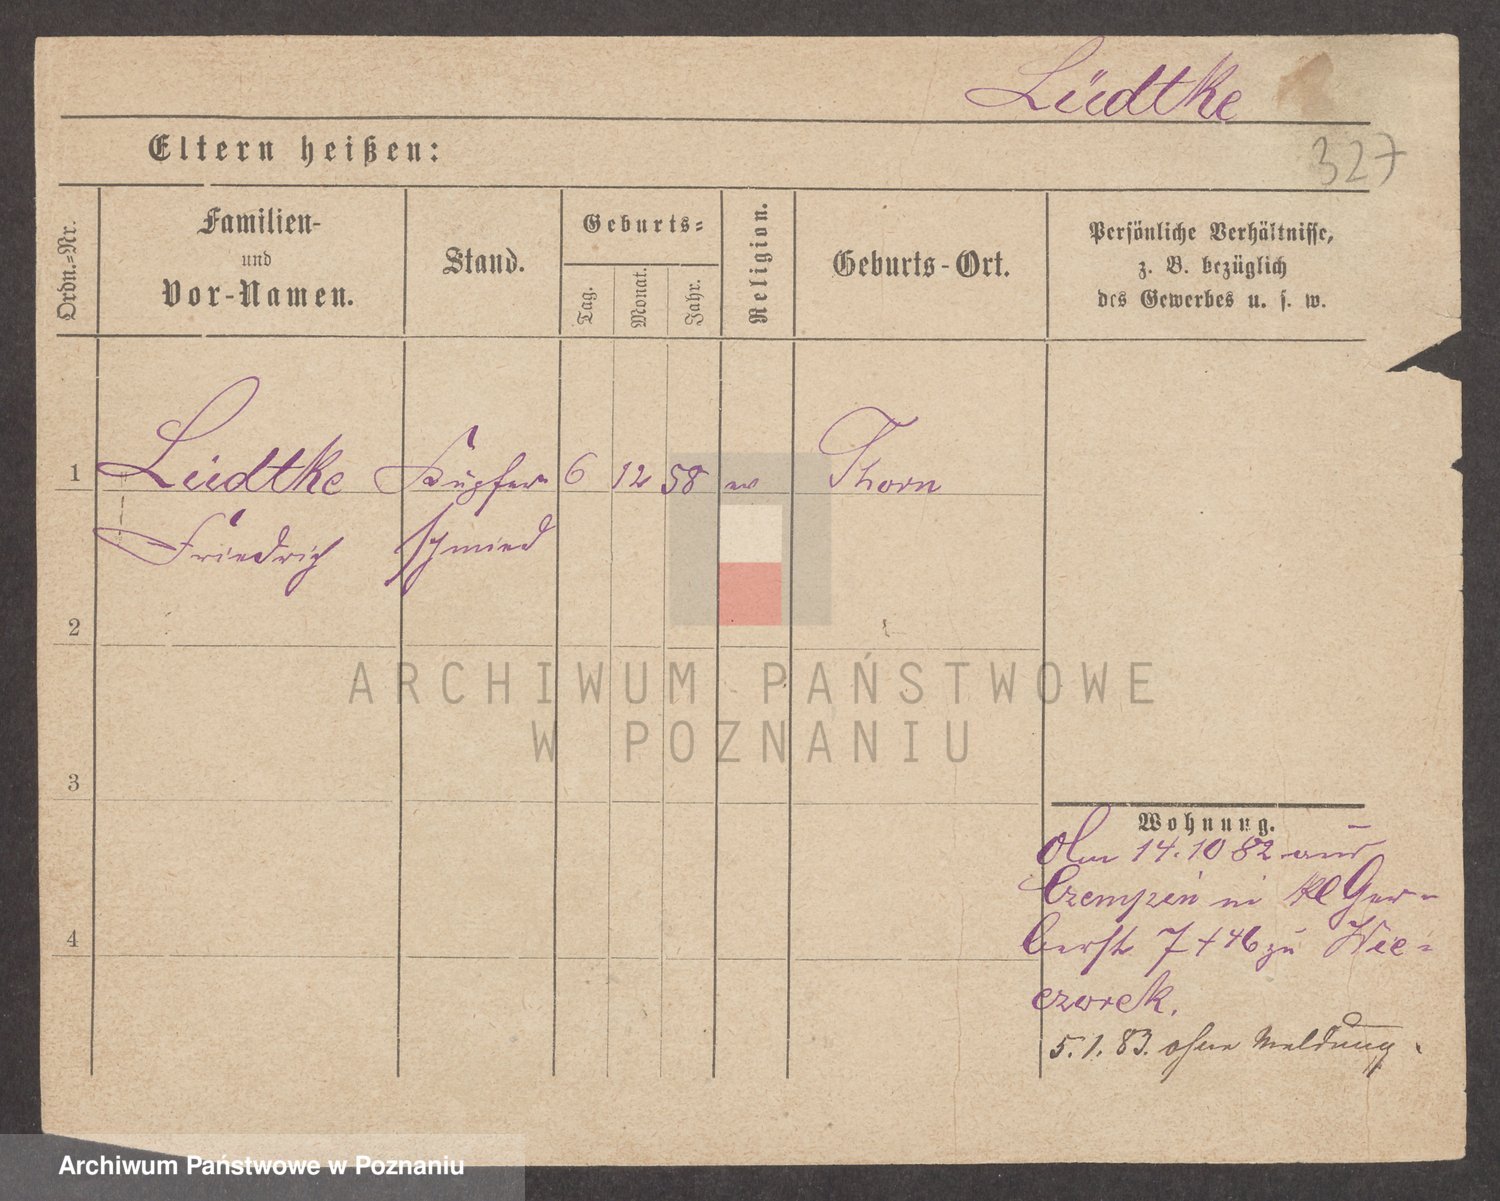 Lüdtke
327
Eltern heißen:
Ordn.=Nr.
Familien-
und
Vor-Namen.
Stand.
Geburts=
Tag.
Monat.
Jahr.
Religion.
Geburts-Ort.
Persönliche Verhältnisse,
z. B. bezüglich
des Gewerbes u. s. w.
1 Lüdtke Kupfer 6 12 58 ev Thorn
Friedrich schmied
2
3
4
Wohnung.
14.10 82 aus
Czempin in kl Ger-
berstr 7 + 46 zu Wie=
czorek.
5.1.83. ohne Meldung.
ARCHIWUM PAŃSTWOWE
W POZNANIU
Archiwum Państwowe w Poznaniu